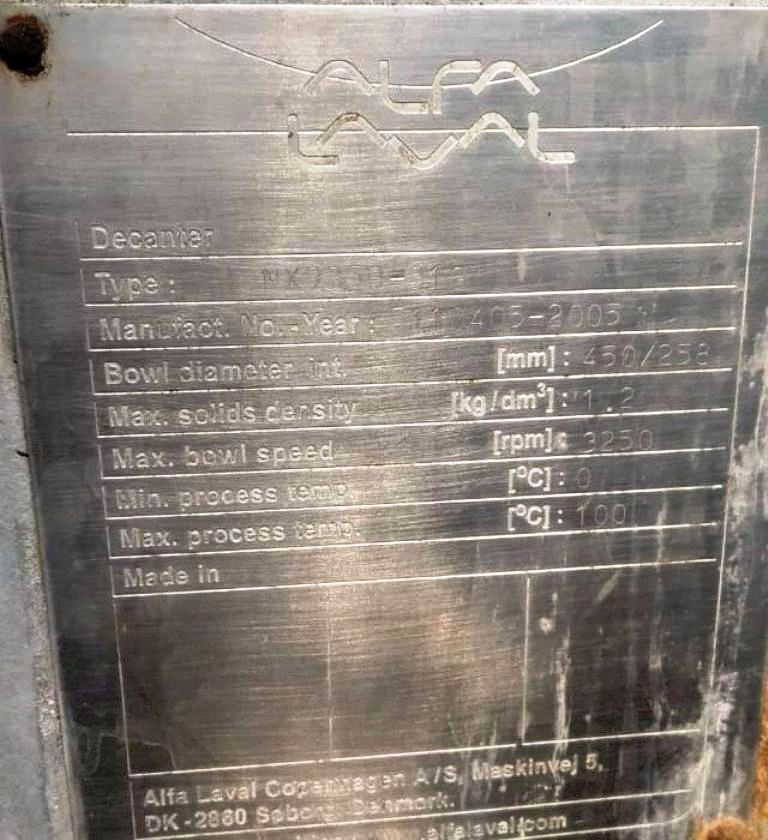 ALFA
LAVAL
Decanter
Type :
Manufact. No.-Year : -2005
Bowl diameter, int. [mm] : 450/258
Max. solids density [kg/dm³] : 1.2
Max. bowl speed [rpm] : 3250
Min. process temp. [°C] : 0
Max. process temp. [°C] : 100
Made in
Alfa Laval Copenhagen A/S, Maskinvej 5,
DK-2860 Søborg, Denmark.
.alfalaval.com